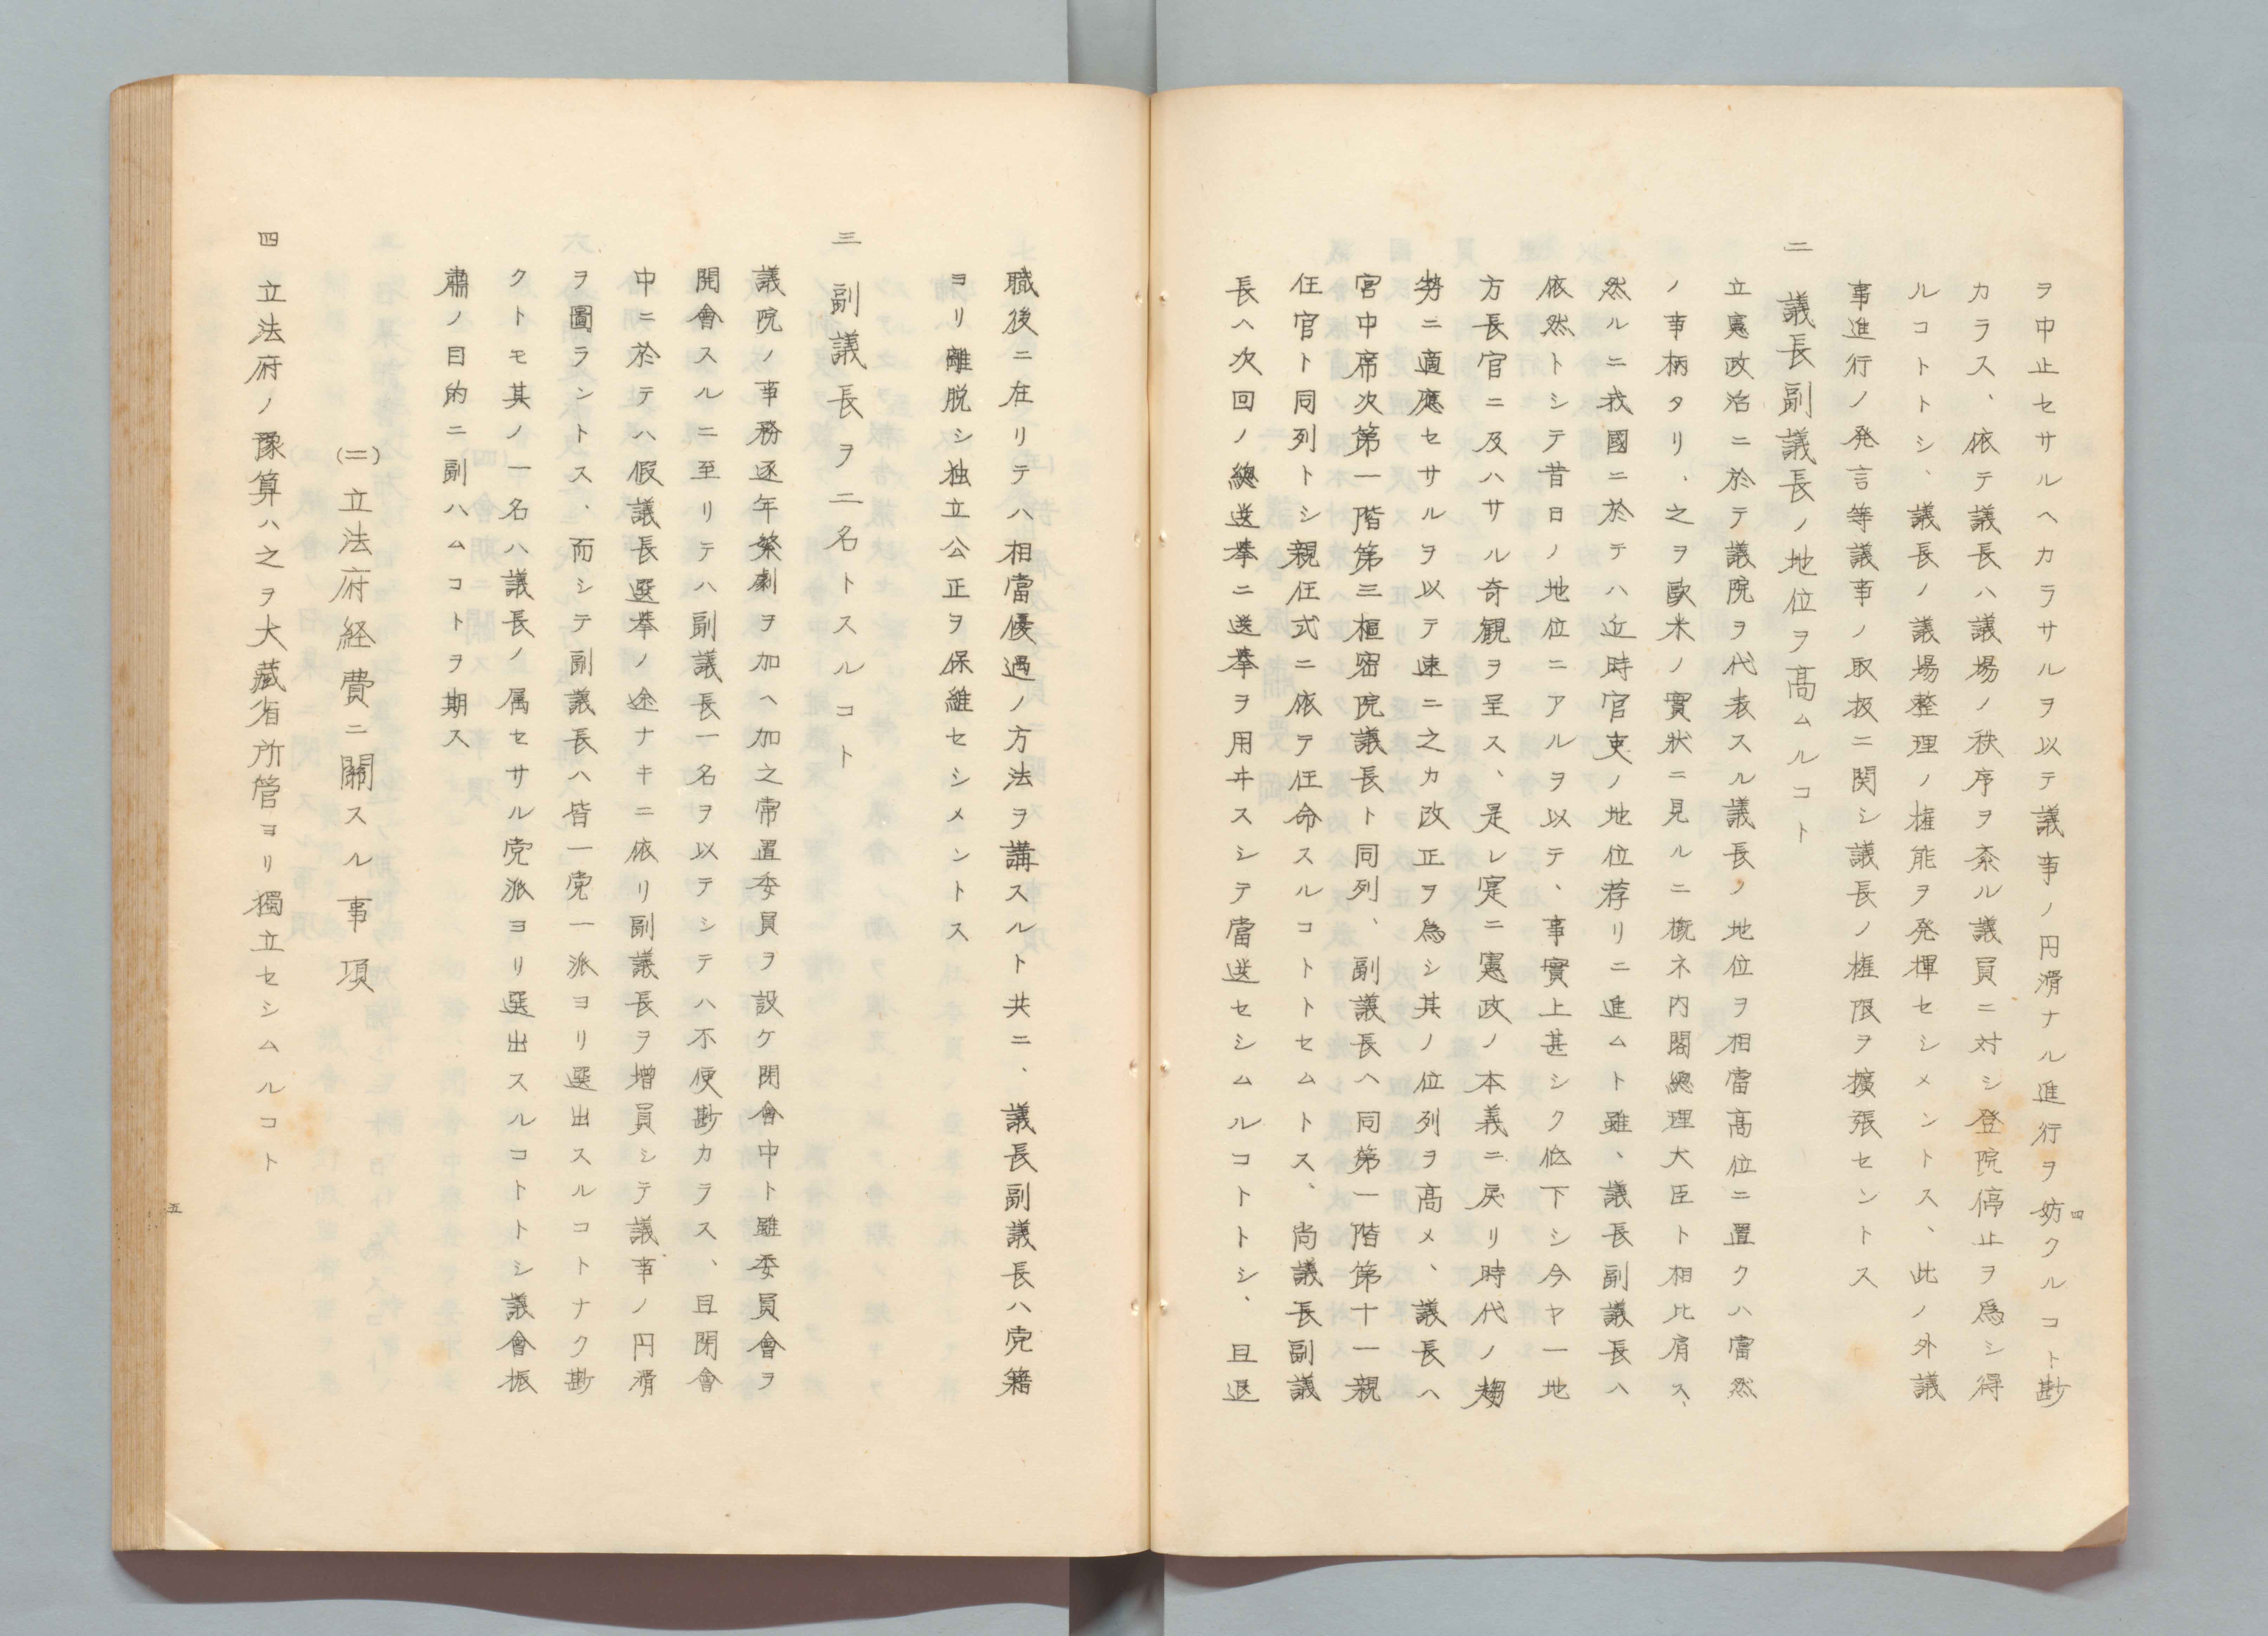 ヲ中止セサルヘカラサルヲ以テ議事ノ円滑ナル進行ヲ妨クルコト尠
カラス、依テ議長ハ議場ノ秩序ヲ紊ル議員ニ対シ登院停止ヲ為シ得
ルコトトシ、議長ノ議場整理ノ権能ヲ発揮セシメントス、此ノ外議
事進行ノ発言等議事ノ取扱ニ関シ議長ノ権限ヲ擴張セントス
二 議長副議長ノ地位ヲ高ムルコト
立憲政治ニ於テ議院ヲ代表スル議長ノ地位ヲ相當高位ニ置クハ當然
ノ事柄タリ、之ヲ歐米ノ實狀ニ見ルニ概ネ内閣總理大臣ト相比肩ス、
然ルニ我國ニ於テハ近時官吏ノ地位荐リニ進ムト雖、議長副議長ハ
依然トシテ昔日ノ地位ニアルヲ以テ、事實上甚シク低下シ今ヤ一地
方長官ニ及ハサル奇観ヲ呈ス、是レ寔ニ憲政ノ本義ニ戻リ時代ノ趨
勢ニ適應セサルヲ以テ速ニ之カ改正ヲ為シ其ノ位列ヲ高メ、議長ハ
宮中席次第一階第三樞密院議長ト同列、副議長ハ同第一階第十一親
任官ト同列トシ親任式ニ依テ任命スルコトトセムトス、尚議長副議
長ハ次回ノ總選挙ニ選挙ヲ用ヰスシテ當選セシムルコトトシ、且退
四
職後ニ在リテハ相當優遇ノ方法ヲ講スルト共ニ、議長副議長ハ党籍
ヨリ離脱シ独立公正ヲ保維セシメントス
三 副議長ヲ二名トスルコト
議院ノ事務逐年繁劇ヲ加ヘ加之常置委員ヲ設ケ閉會中ト雖委員會ヲ
開會スルニ至リテハ副議長一名ヲ以テシテハ不便尠カラス、且閉會
中ニ於テハ假議長選挙ノ途ナキニ依リ副議長ヲ増員シテ議事ノ円滑
ヲ圖ラントス、而シテ副議長ハ皆一党一派ヨリ選出スルコトナク尠
クトモ其ノ一名ハ議長ノ属セサル党派ヨリ選出スルコトトシ議會振
肅ノ目的ニ副ハムコトヲ期ス
(二) 立法府経費ニ關スル事項
四 立法府ノ豫算ハ之ヲ大藏省所管ヨリ獨立セシムルコト
五